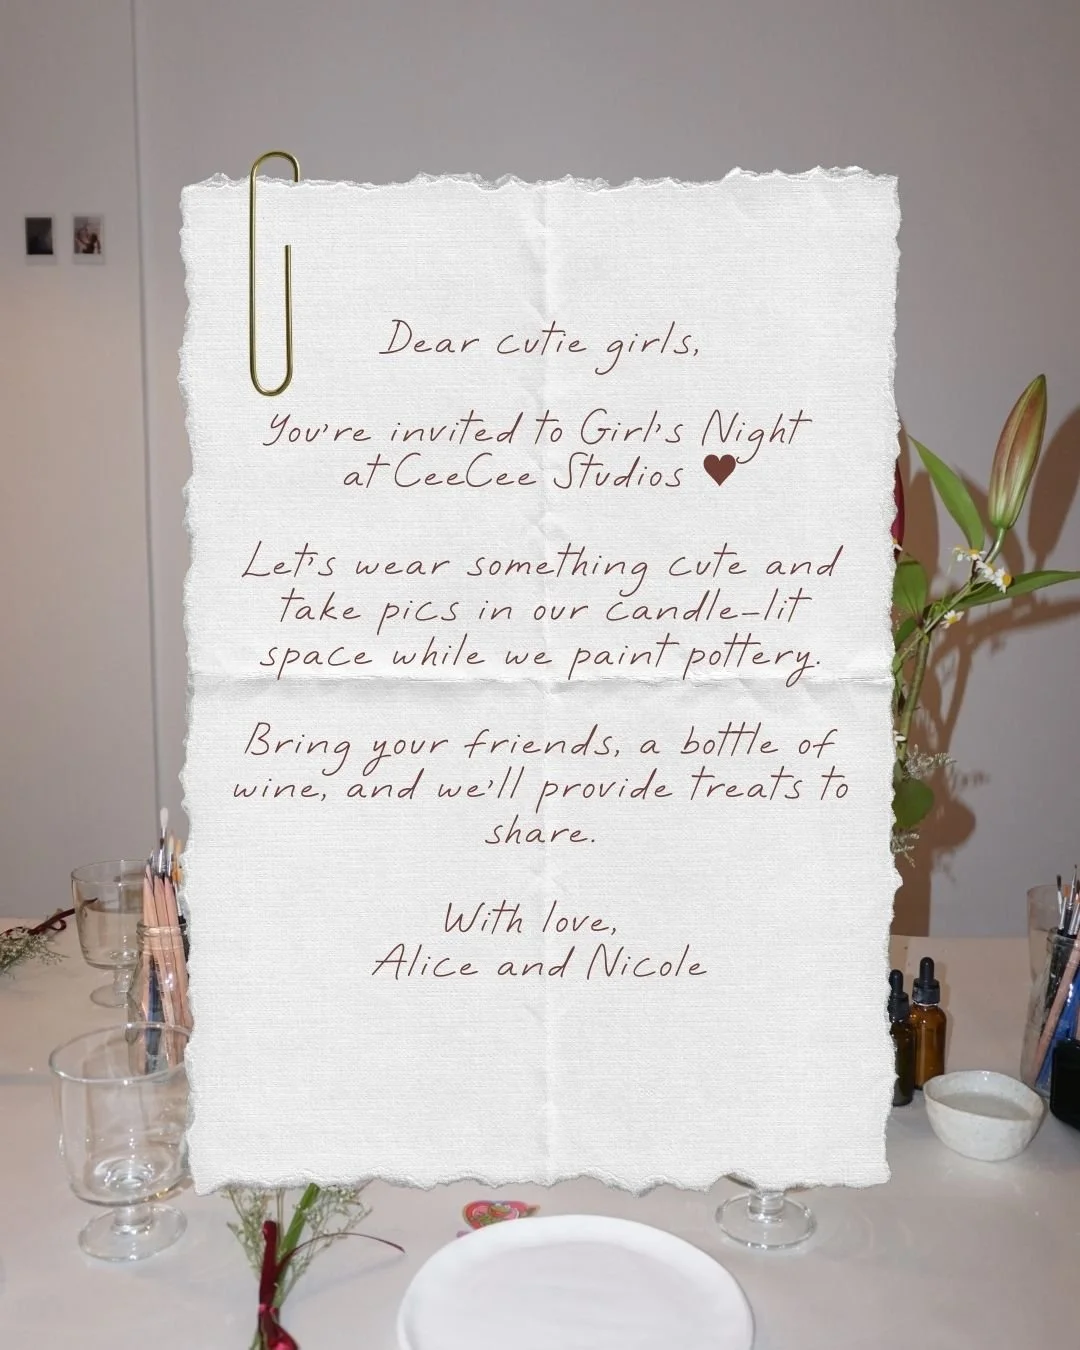 Dear cutie girls,
You're invited to Girl's Night
at CeeCee Studios ♥
Let's wear something cute and
take pics in our candle-lit
space while we paint pottery.
Bring your friends, a bottle of
wine, and we'll provide treats to
share.
With love,
Alice and Nicole